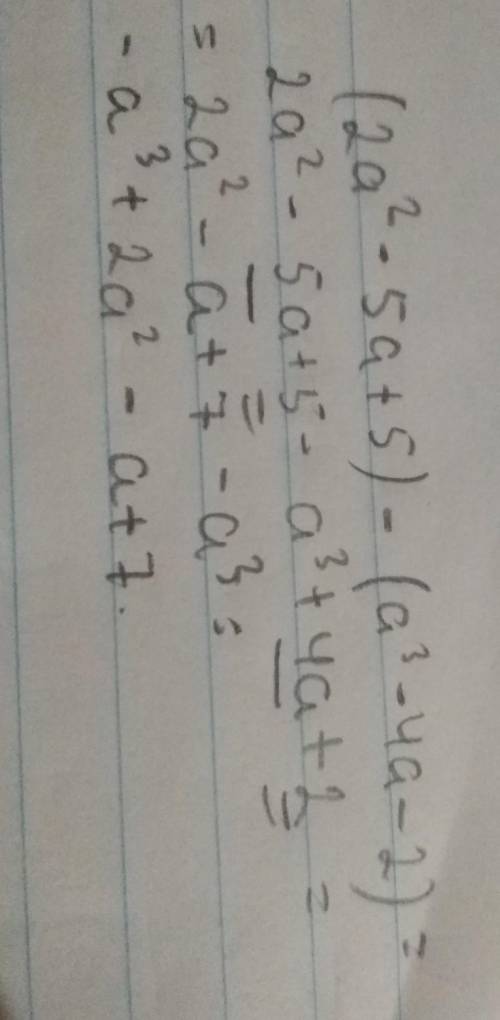 (2a² - 5a + 5) - (a³ - 4a - 2) =
2a² - 5a + 5 - a³ + 4a + 2 =
= 2a² - a + 7 - a³ =
- a³ + 2a² - a + 7.